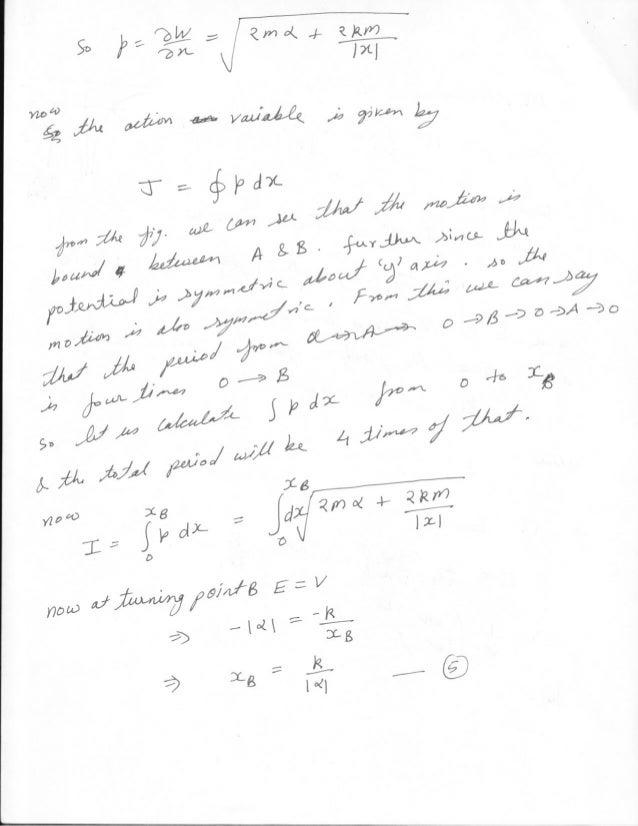 So p = ∂W/∂x = √(2mα + 2km/|x|)
now
the action variable is given by
J = ∮ p dx
from the fig. we can see that the motion is
bound between A & B. further since the
potential is symmetric about 'y' axis. so the
motion is also symmetric. From this we can say
that the period from 0 → B → 0 → A → 0
is four times 0 → B
So let us calculate ∫ p dx from 0 to x_B
& the total period will be 4 times of that.
now I = ∫₀^{x_B} p dx = ∫₀^{x_B} dx √(2mα + 2km/|x|)
now at turning point B E = V
⇒ -|α| = -k/x_B
⇒ x_B = k/|α| — ⑤